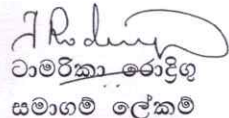 ටාමරිකා රොද්‍රිගු
සමාගම් ලේකම්